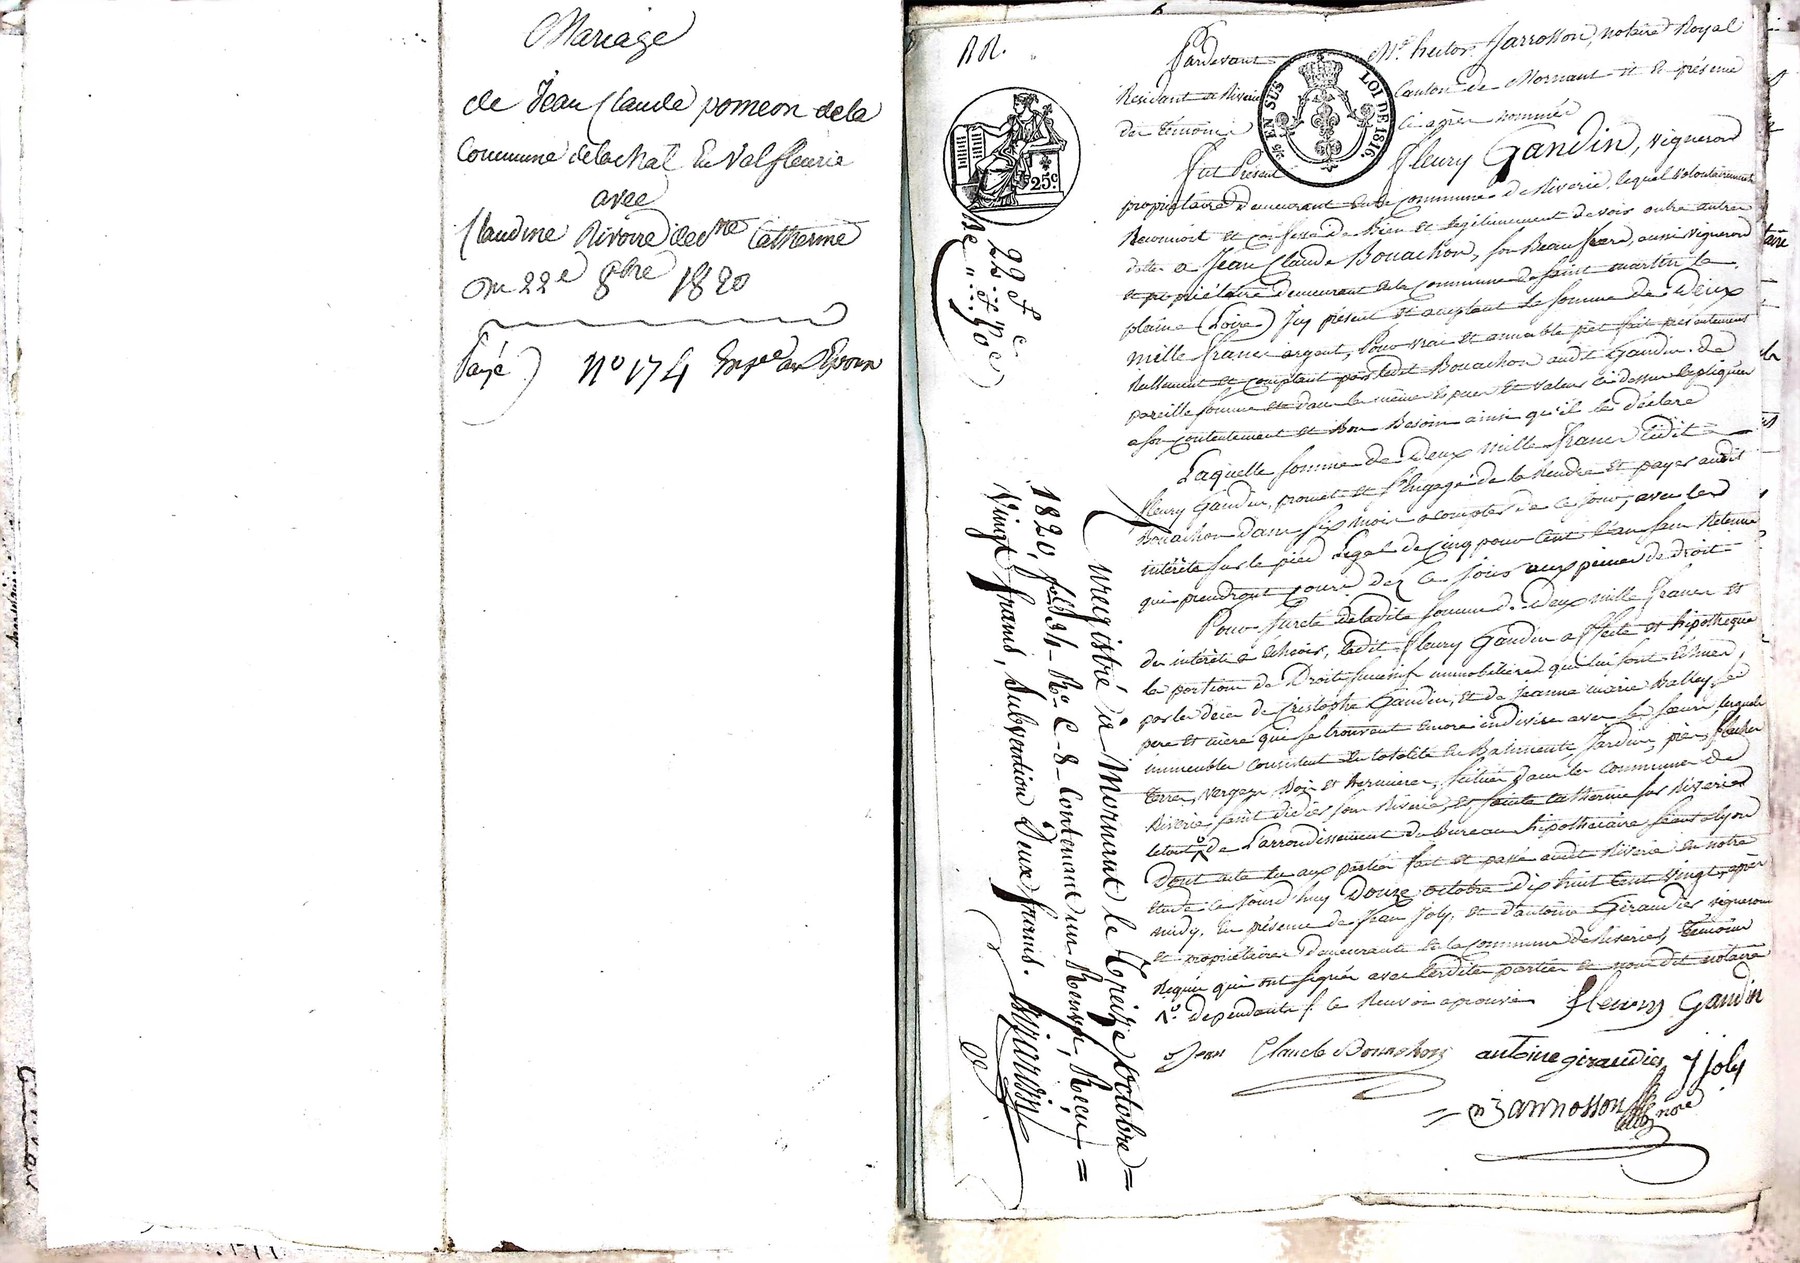 Mariage
de Jean Claude pomeon de la
Commune de lachal En Valfleurie
avec
Claudine Rivoire de Ste Catherine
Du 22e 8bre 1820
Payé N° 174
EN SUS
LOI DE 1816.
25c
22 f c
2.. f 70 c
Pardevant Me hector Jarrosson, notaire Royal
Residant a Riverie Canton de Mornant et En présence
des témoins ci après nommés
fut Présent Fleury Gandin, vigneron
propriétaire demeurant En la commune de Riverie, lequel volontairement
Reconnoit et confesse de Bien et legitimement devoir outre autres
dettes a Jean Claude Bouachon, son Beau frere, aussi vigneron
et propriétaire demeurant En la commune de Saint martin la
plaine (Loire) Icy présent et acceptant La somme de Deux
mille francs argent, Pour vrai et amiable prêt fait presentement
Réellement et comptant par ledit Bouachon audit Gandin de
pareille somme et dans les mêmes Especes et valeur ci dessus Expliquées
a son contentement et Bon Besoin ainsi qu'il le déclare
Laquelle somme de Deux mille francs ledit
fleury Gandin, promet et s'Engage de la Rendre et payer audit
Bouachon dans six mois a compter de ce jour, avec les
intérêts sur le pied Legal de Cinq pour Cent l'an sans Retenue
qui prendront cours dez ce jour aux peines de droit
Pour sureté de ladite somme de Deux mille francs et
des intérêts a Echeoir, ledit fleury Gandin affecte et hipotheque
les portions de Droits successifs immobiliers qui lui sont Echues,
par les décès de Cristophe Gandin, et de Jeanne marie Balley, ses
pere et mère qui se trouvent Encore indivises avec ses sœurs, lesquels
immeubles consistent En totalité En Batiments, Jardin, prés,
terres, vergers, Bois et hermures, situés dans les communes de
Riverie Saint didier sous Riverie, et Sainte Catherine sur Riverie
letout de L'arrondissement du Bureau hipothécaire séant a Lyon
Dont acte lu aux parties fait et passé audit Riverie En notre
Etude ce Jourd'huy Douze octobre dix huit Cent vingt, après
midy, En présence de Jean Joly, et d'antoine Giraudier vignerons
et propriétaires demeurants En la commune de Riverie, témoins
Requis qui ont signés avec lesdites parties et nous dit notaire
dependants /. le Renvoi aprouvé
fleury Gandin
Jean Claude Bouachon antoine giraudier J Joly
Jarrosson nore
Enregistré à Mornant le treize octobre =
1820, fo 34 Ro C - 8 - Contenant un Renvoi, Reçu =
Vingt francs, Subvention Deux francs.